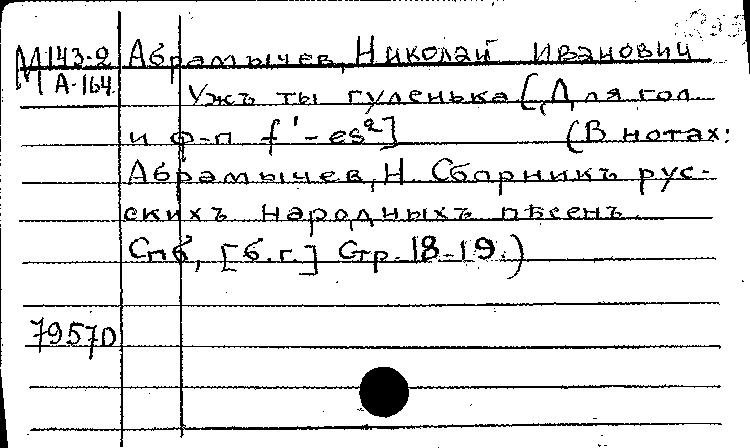 М143-2 Абрамычев, Николай Иванович
А-164
Ужъ ты гуленька [Для гол.
и ф-п f'-es²] (В нотах:
Абрамычев, Н. Сборникъ рус-
скихъ народныхъ пѣсенъ.
Спб, [б.г.] Стр. 18-19.)
7957D